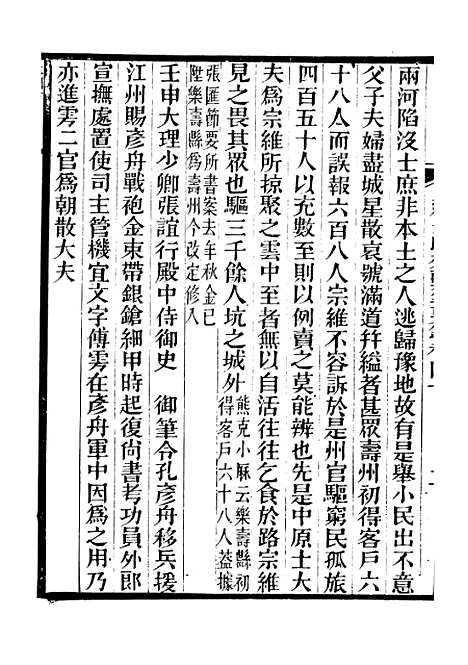 兩河陷沒士庶非本土之人逃歸豫地故有是舉小民出不意
父子夫婦盡城星散哀號滿道幷縊者甚眾壽州初得客戶六
十八人而誤報六百八人宗維不容訴於是州官驅窮民孤旅
四百五十人以充數至則一例賣之莫能辨也先是中原士大
夫爲宗維所掠聚之雲中至者無以自活往往乞食於路宗維
見之畏其眾也驅三千餘人坑之城外
熊克小厤云樂壽縣初
得客戶六十八人蓋據
張匯節要所書案去年秋金已
陞樂壽縣爲壽州今改定修入
壬申大理少卿張誼行殿中侍御史　御筆令孔彥舟移兵援
江州賜彥舟戰袍金束帶銀鎗細甲時起復尙書考功員外郎
宣撫處置使司主管機宜文字傅雱在彥舟軍中因爲之用乃
亦進雱二官爲朝散大夫